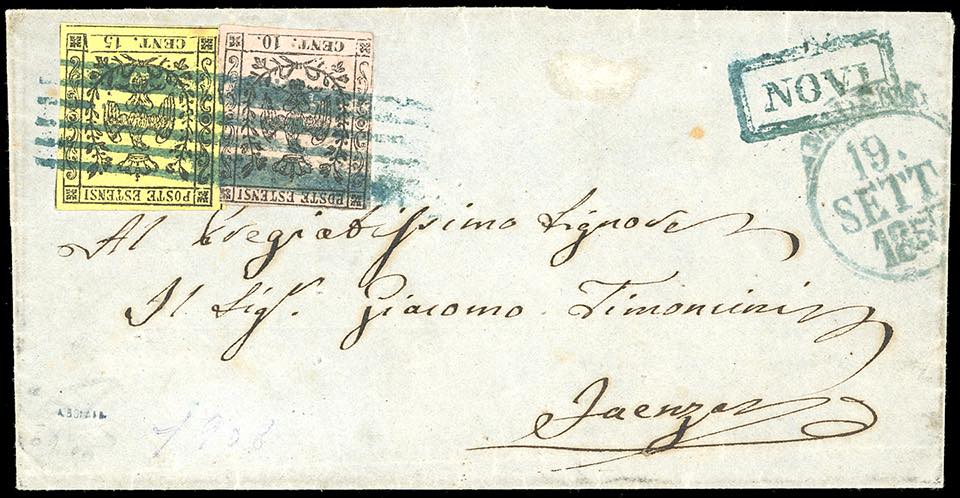 CENT. 15
POSTE ESTENSI
CENT. 10.
POSTE ESTENSI
NOVI
19.
SETT
185
Al Pregiatissimo Signore
Il Sigr. Giacomo Timoncini
Faenza